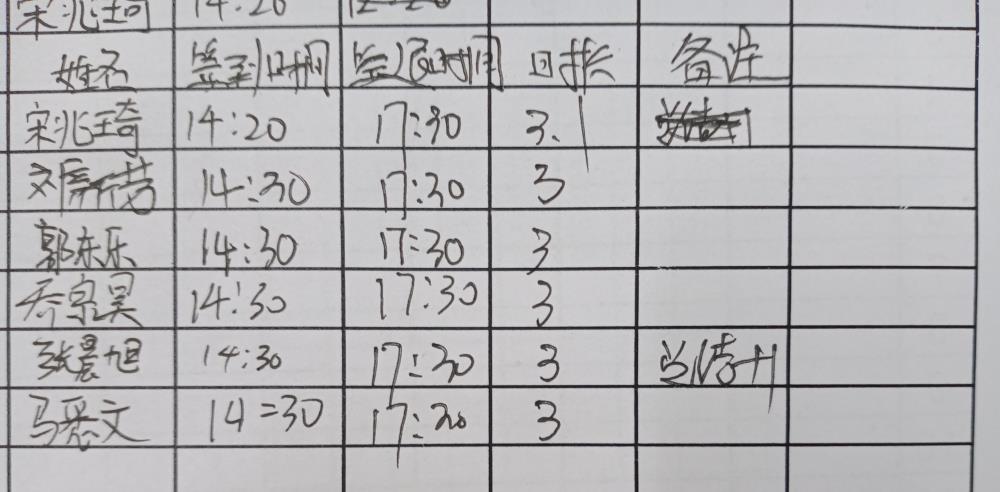 宋兆琦 14:20
姓名 签到时间 签退时间 时长 备注
宋兆琦 14:20 17:30 3.1
14:30 17:30 3
郭东乐 14:30 17:30 3
乔宗昊 14:30 17:30 3
张晨旭 14:30 17:30 3
马思文 14=30 17:30 3